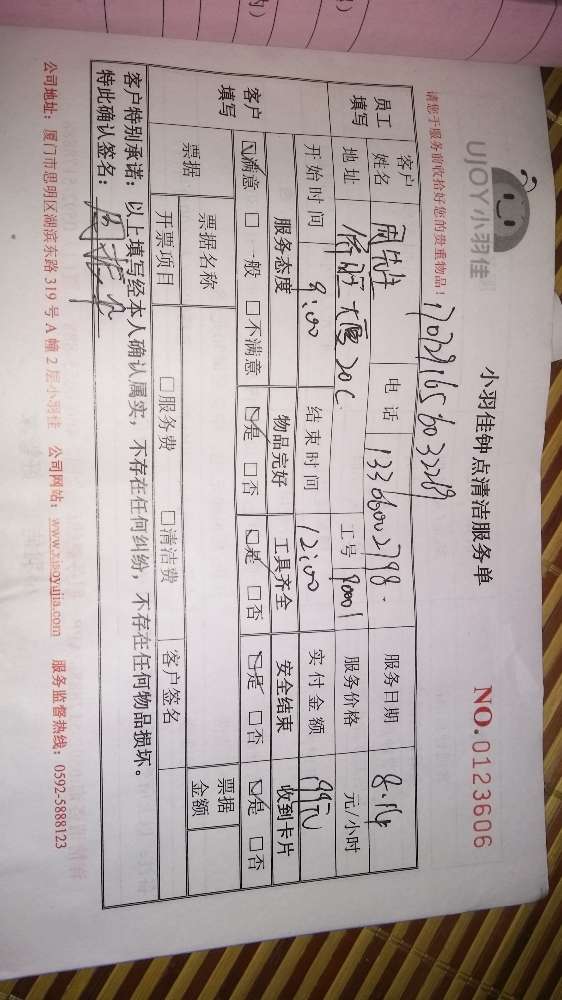 UJOY小羽佳
小羽佳钟点清洁服务单
NO.0123606
请您于服务前收拾好您的贵重物品！
员工填写
客户姓名 周先生 电话 13306002798. 服务日期 8.14
地址 侨胜大厦20C. 工号 90001 服务价格 元/小时
开始时间 9:00 结束时间 12:00 实付金额 99元
客户填写
服务态度 物品完好 工具齐全 安全结束 收到卡片
☑满意 □ 一般 □不满意 ☑是 □否 ☑是 □否 ☑是 □否 ☑是 □否
票据 票据名称 票据金额
开票项目 □服务费 □清洁费 客户签名
客户特别承诺：以上填写经本人确认属实，不存在任何纠纷，不存在任何物品损坏。
特此确认签名：
公司地址：厦门市思明区湖滨东路 319 号 A 幢 2 层小羽佳 公司网站：www.xiaoyujia.com 服务监督热线：0592-5888123